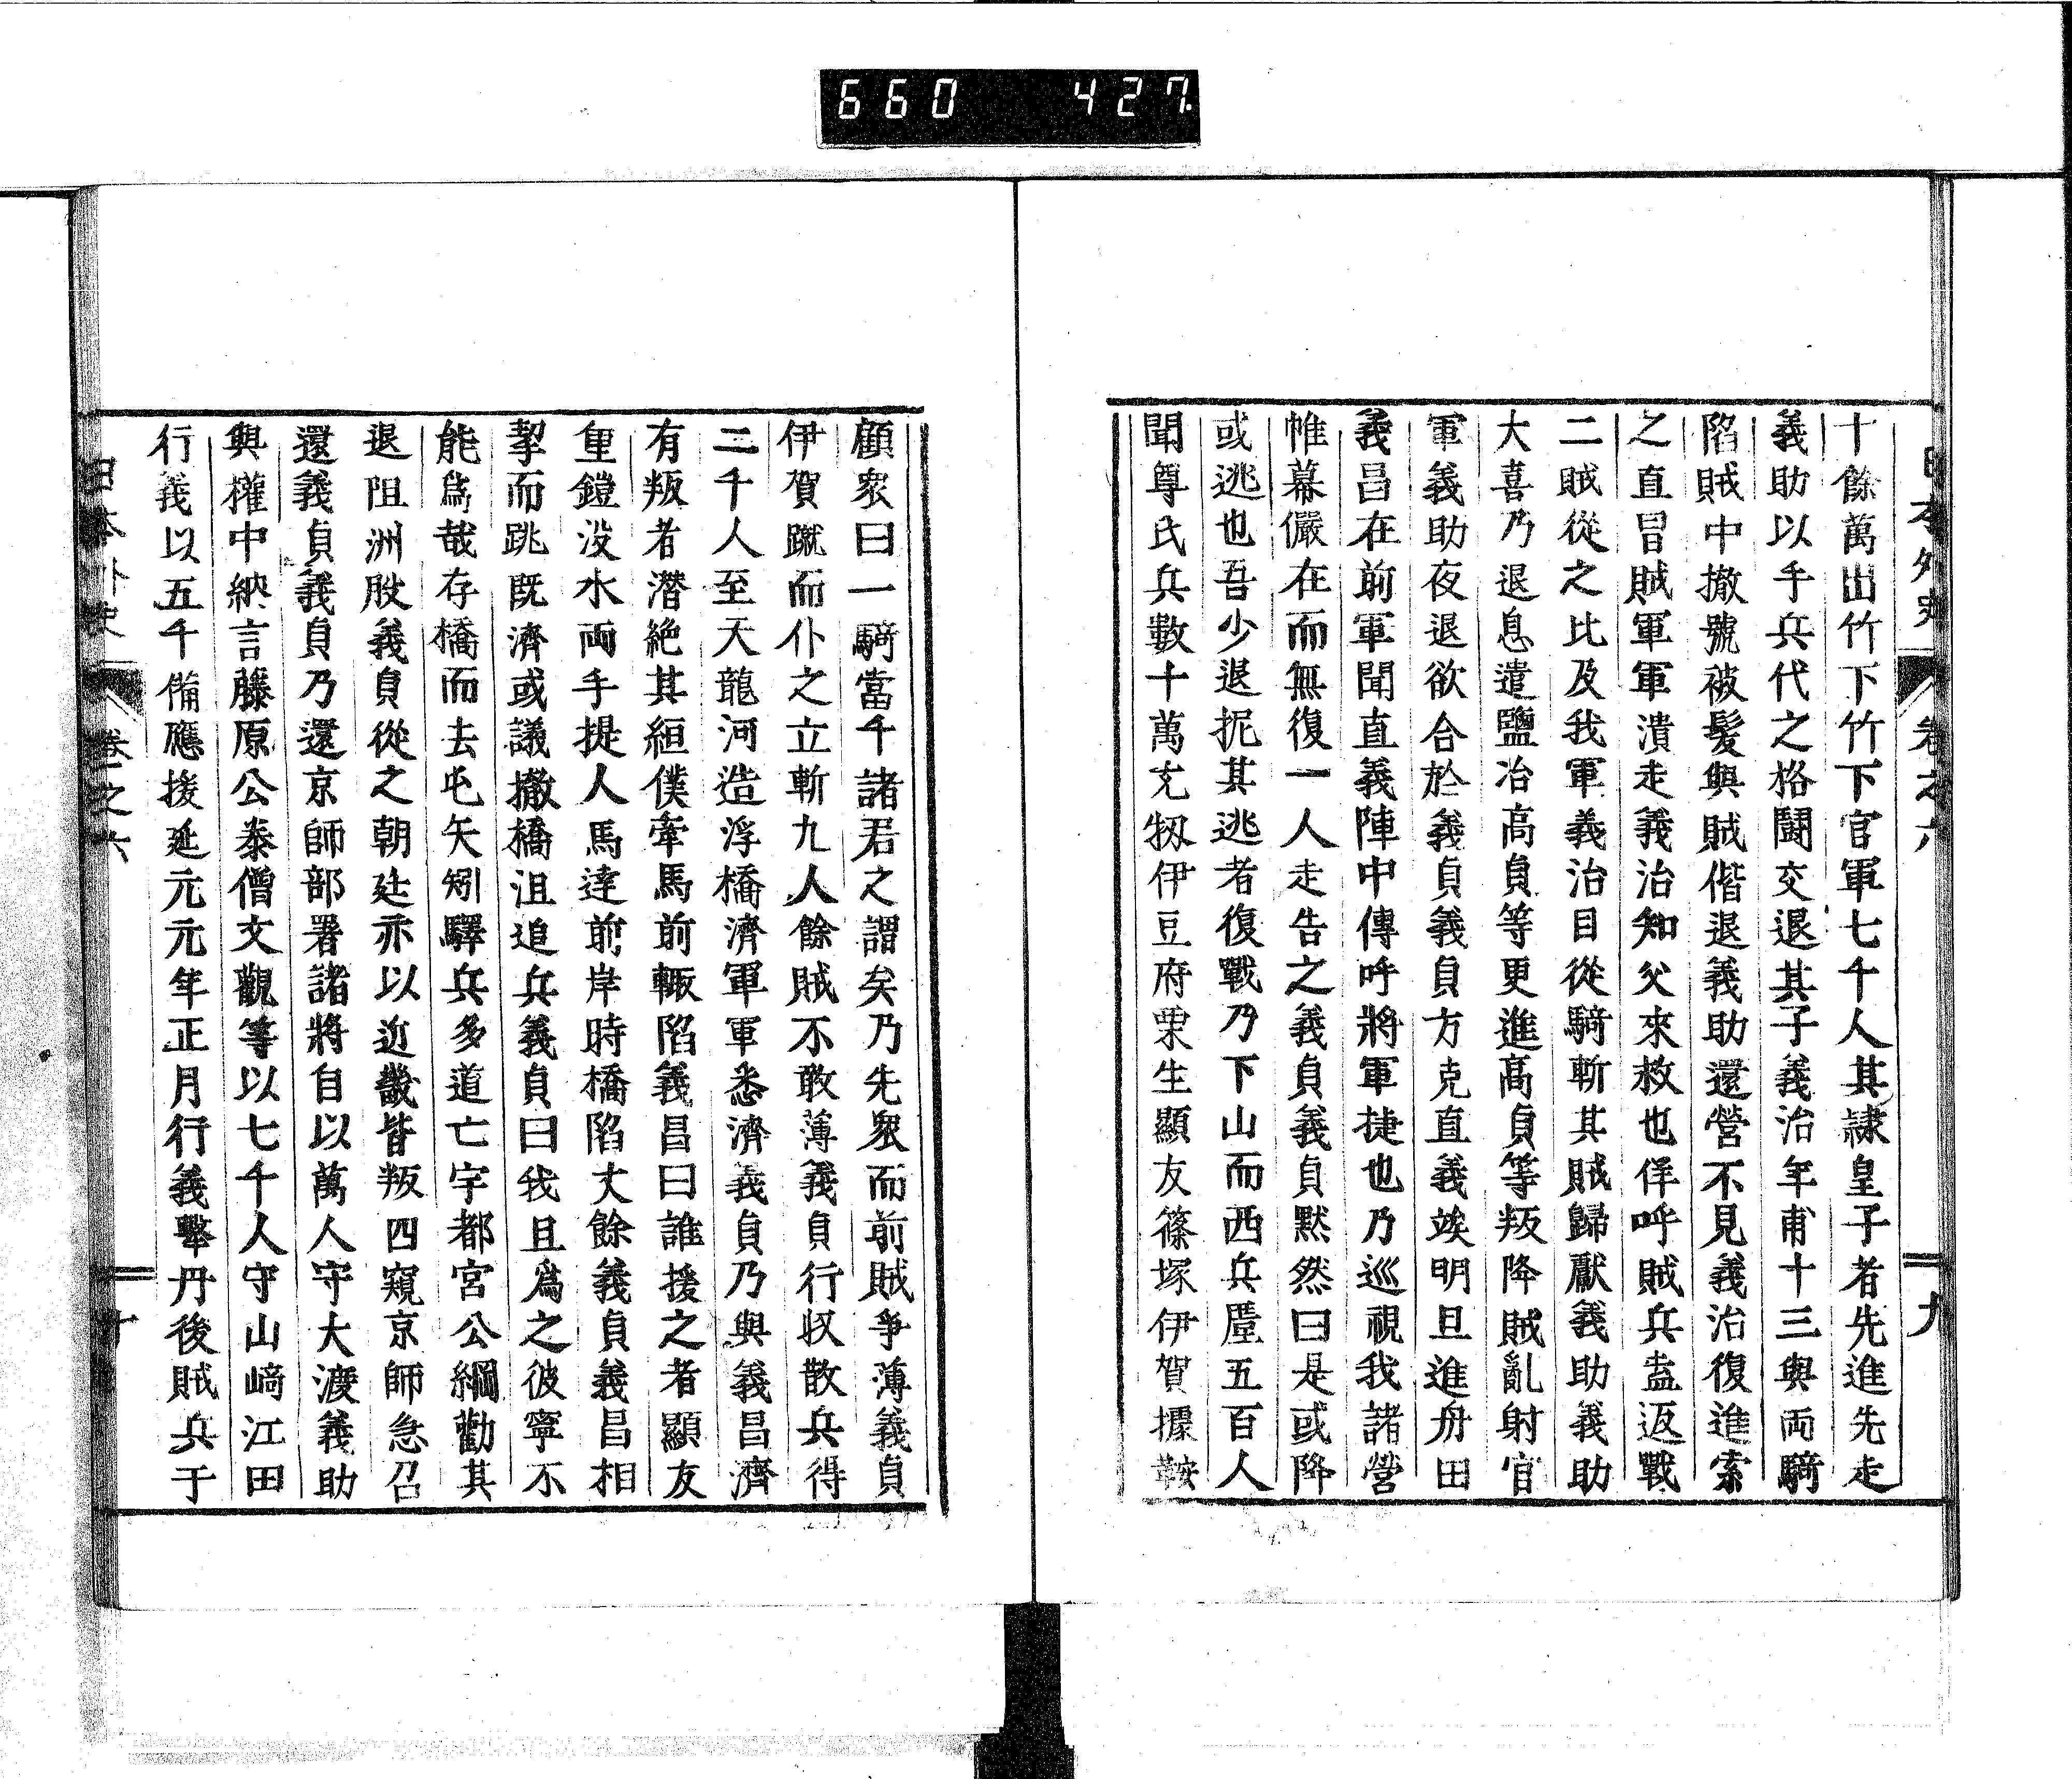 660 427
日本外史 卷之六 九
十餘萬出竹下竹下官軍七千人其隷皇子者先進先走
義助以手兵代之格鬪交退其子義治年甫十三與両騎
陷賊中撤號被髮與賊偕退義助還營不見義治復進索
之直冒賊軍軍潰走義治知父來救也佯呼賊兵盍返戰
二賊從之比及我軍義治目從騎斬其賊歸獻義助義助
大喜乃退息遣鹽冶高貞等更進高貞等叛降賊亂射官
軍義助夜退欲合於義貞義貞方克直義竢明旦進舟田
義昌在前軍聞直義陣中傳呼將軍捷也乃巡視我諸營
帷幕儼在而無復一人走告之義貞義貞默然曰是或降
或逃也吾少退扼其逃者復戰乃下山而西兵厪五百人
聞尊氏兵數十萬充牣伊豆府栗生顯友篠塚伊賀據鞍
顧衆曰一騎當千諸君之謂矣乃先衆而前賊爭薄義貞
伊賀蹴而仆之立斬九人餘賊不敢薄義貞行収散兵得
二千人至天龍河造浮橋濟軍軍悉濟義貞乃與義昌濟
有叛者潛絶其絙僕牽馬前輙陷義昌曰誰援之者顯友
重鎧没水両手提人馬達前岸時橋陷丈餘義貞義昌相
挈而跳既濟或議撤橋沮追兵義貞曰我且爲之彼寧不
能爲哉存橋而去屯矢矧驛兵多道亡宇都宮公綱勸其
退阻洲股義貞從之朝廷亦以近畿皆叛四窺京師急召
還義貞義貞乃還京師部署諸將自以萬人守大渡義助
與權中納言藤原公泰僧文觀等以七千人守山﨑江田
行義以五千備應援延元元年正月行義擊丹後賊兵于
日本外史 卷之六 十